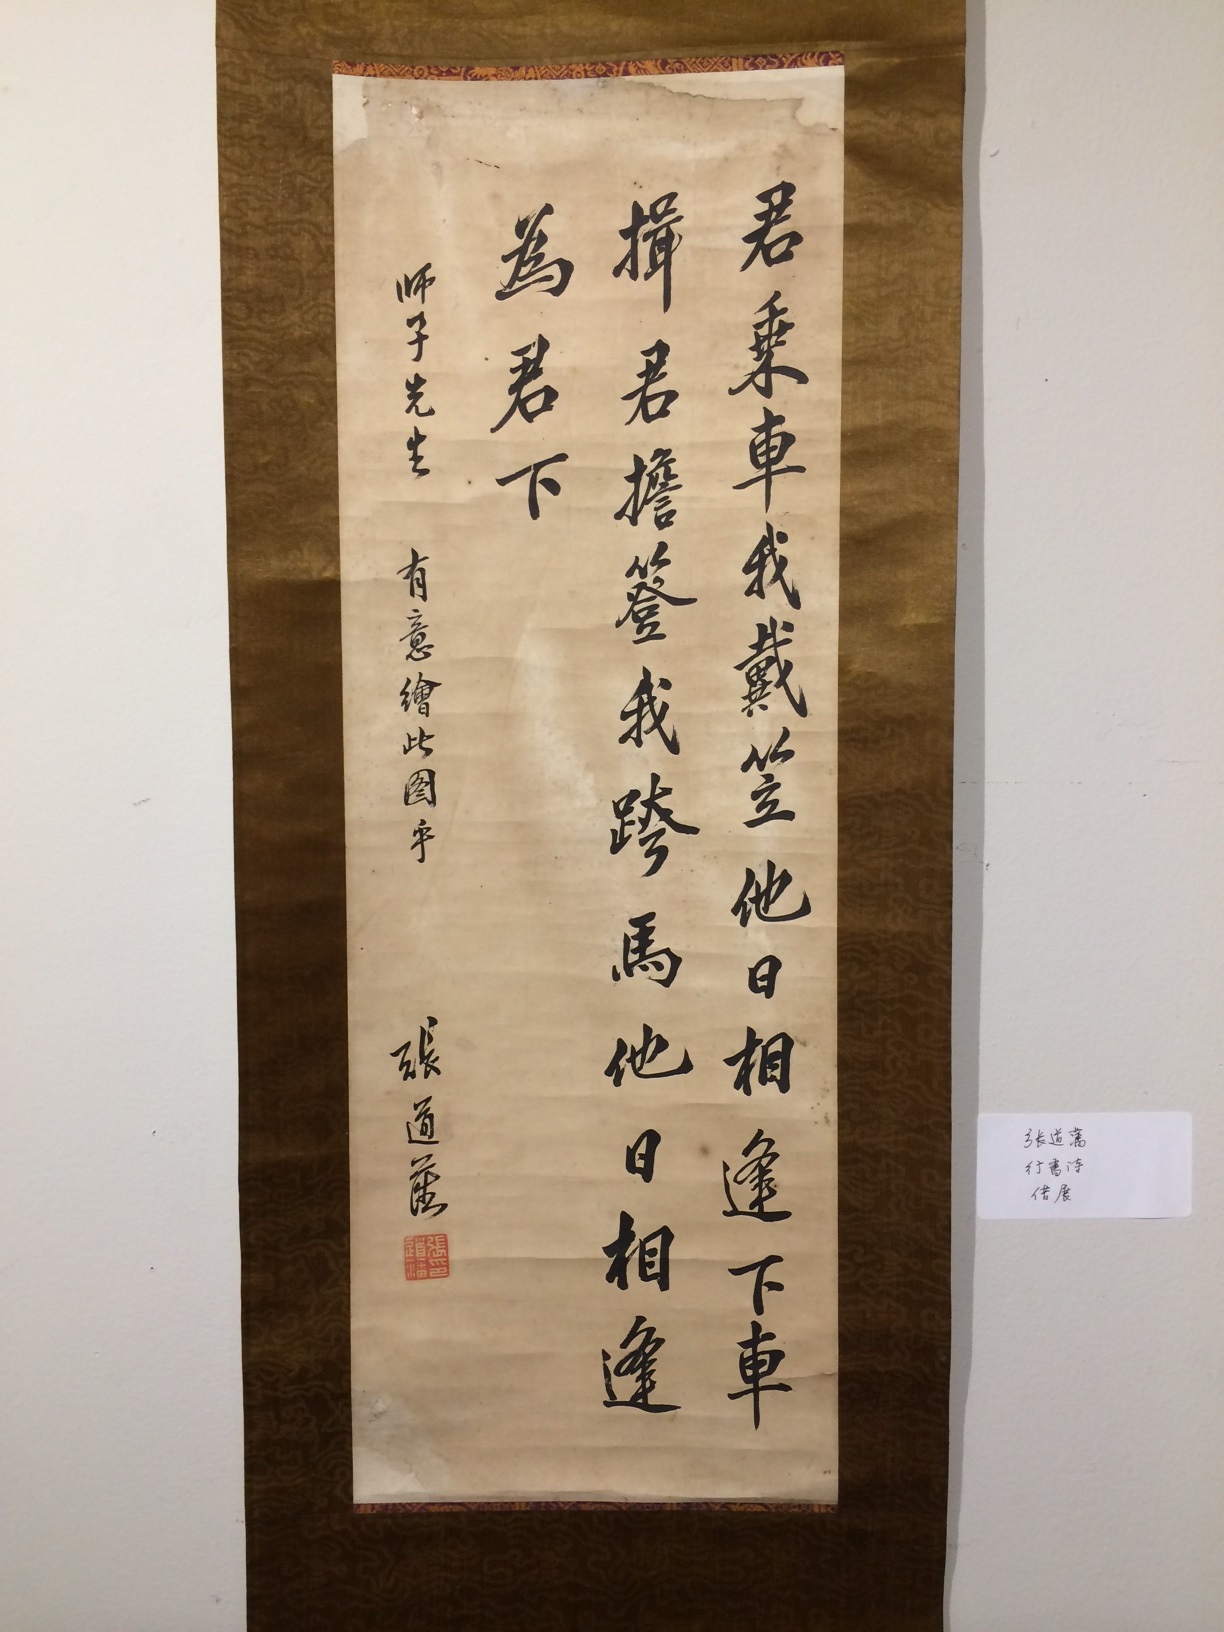 君乘車我戴笠他日相逢下車
揖君擔簦我跨馬他日相逢
為君下
師子先生
有意繪此圖乎
張道藩
張道藩
行書詩
借展